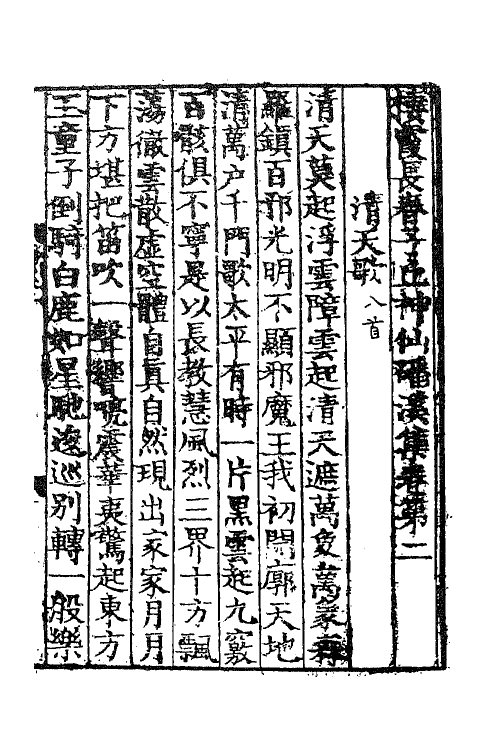 棲霞長春子丘神仙磻溪集卷第二
清天歌八首
清天莫起浮雲障雲起清天遮萬象萬象森
羅鎮百邪光明不顯邪魔王我初開廓天地
清萬户千門歌太平有時一片黑雲起九竅
百骸俱不寧是以長教慧風烈三界十方飄
蕩徹雲散虛空體自真自然現出家家月月
下方堪把笛吹一聲響喨震華夷驚起東方
三童子倒騎白鹿如星馳逡巡別轉一般樂